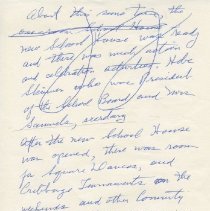 About this same time the
new School House was ready
and there was much action
and celebration activities. Hobe
Skipper who was President
of the School Board and Mrs
Samuels, secretary
After the new School House
was opened, there was room
for Square Dances, and
Cribbage Tournaments on the
weekends and other Community